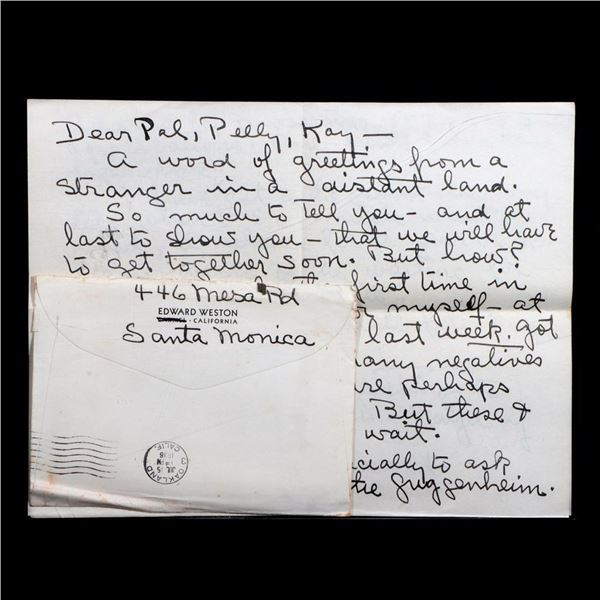 Dear Pal, Pelly, Kay —
A word of greetings from a
stranger in a distant land.
So much to tell you — and at
last to show you — that we will have
to get together soon. But how?
first time in
myself — at
last week. Got
many negatives
perhaps
But these &
wait.
cially to ask
the Guggenheim.
446 Mesa Rd
EDWARD WESTON
CALIFORNIA
Santa Monica
OAKLAND
CALIF.
3
JUL 5
1938